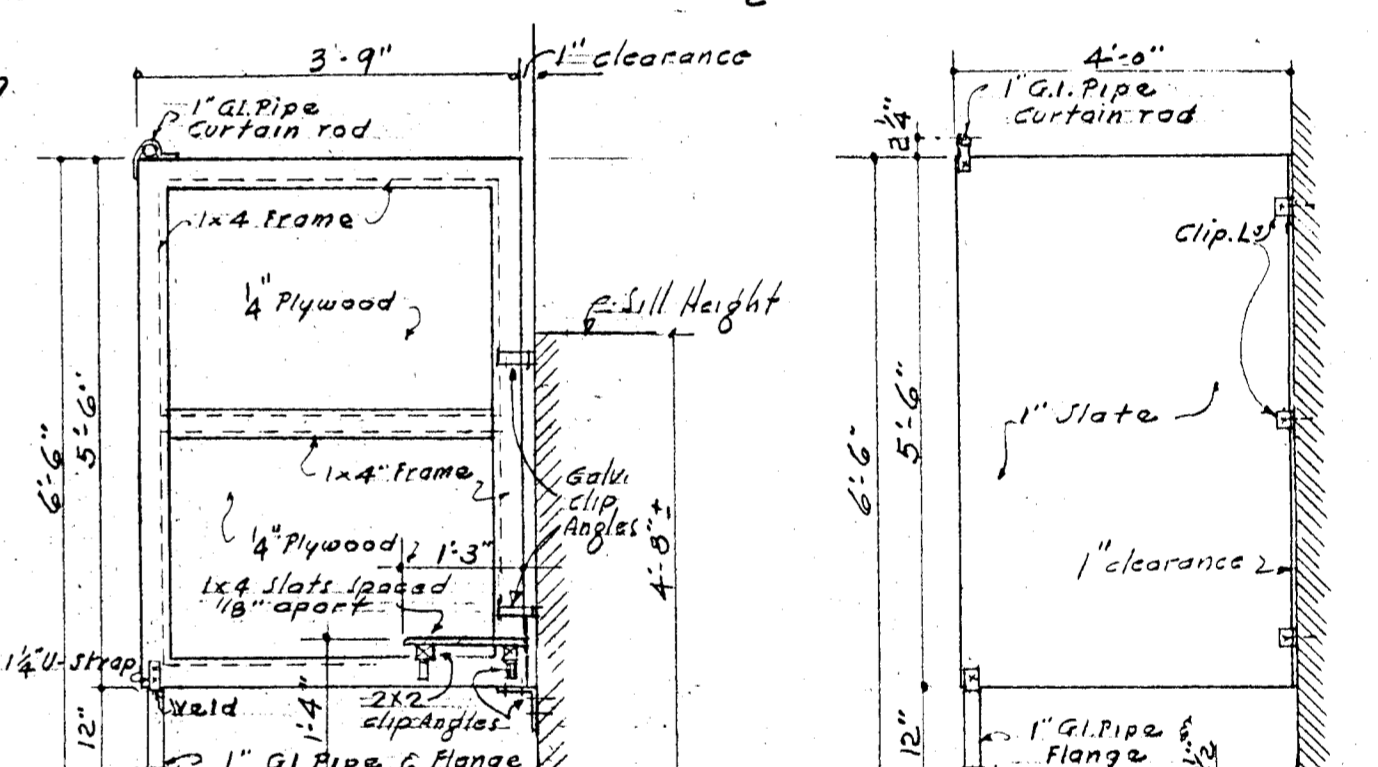 3'-9"
1" clearance
1" G.I. Pipe
Curtain rod
1x4 Frame
1/4" Plywood
Sill Height
6'-6"
5'-6"
1x4" Frame
Galv.
clip
Angles
4'-8"±
1/4" Plywood
1'-3"
1x4 Slats Spaced
1/8" apart
1 1/4" U-Strap
Weld
1'-4"
2x2
clip Angles
12"
1" G.I. Pipe & Flange
4'-0"
1" G.I. Pipe
Curtain rod
2 1/4"
Clip. Ls
6'-6"
5'-6"
1" Slate
1" clearance
12"
1" G.I. Pipe
Flange